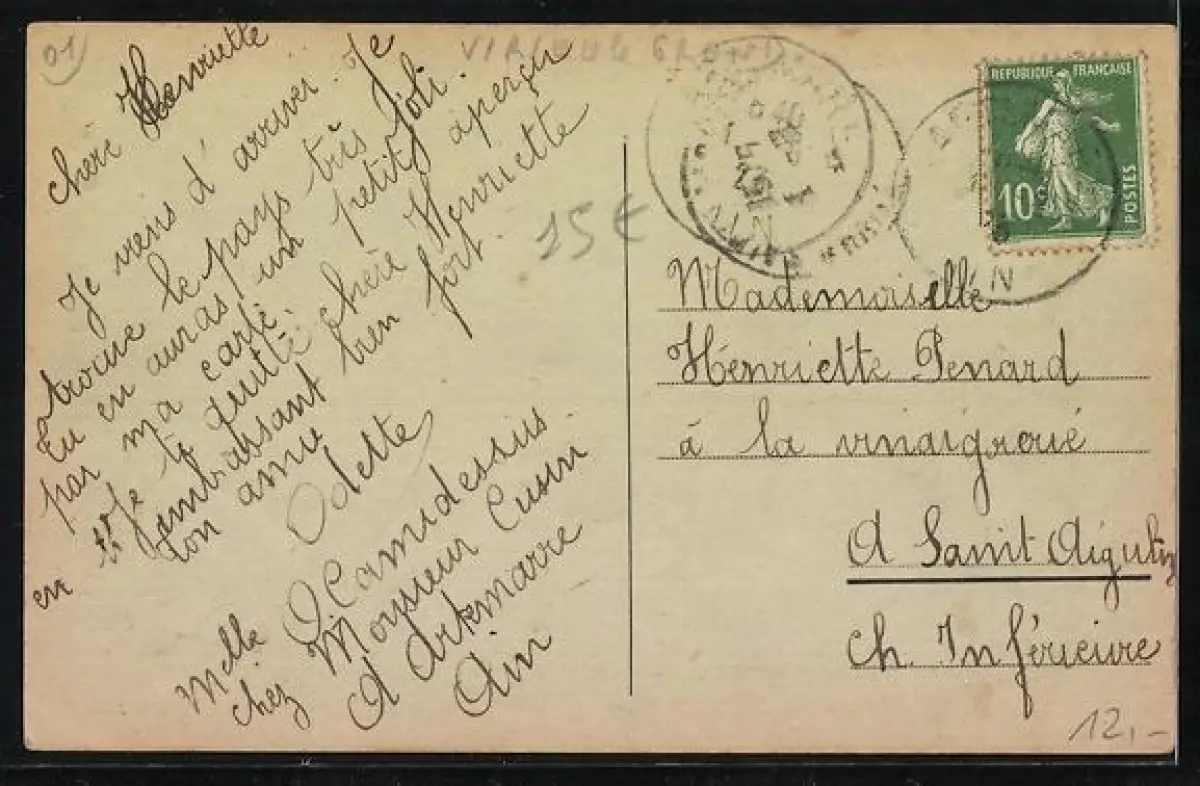 01
chere Henriette
Je viens d'arriver. Je
trouve le pays très joli.
tu en auras un petit aperçu
par ma carte.
Je te quitte chère Henriette
en t'embrassant bien fort.
ton amie
Odette
Melle O Camidessus.
chez Monsieur Cusin
A Artemarre
Ain
15 €
REPUBLIQUE FRANÇAISE
10c
POSTES
AIN
Mademoiselle
Henriette Penard
à la vinaigroué
A Saint Aigulin
Ch. Inférieure
12,-